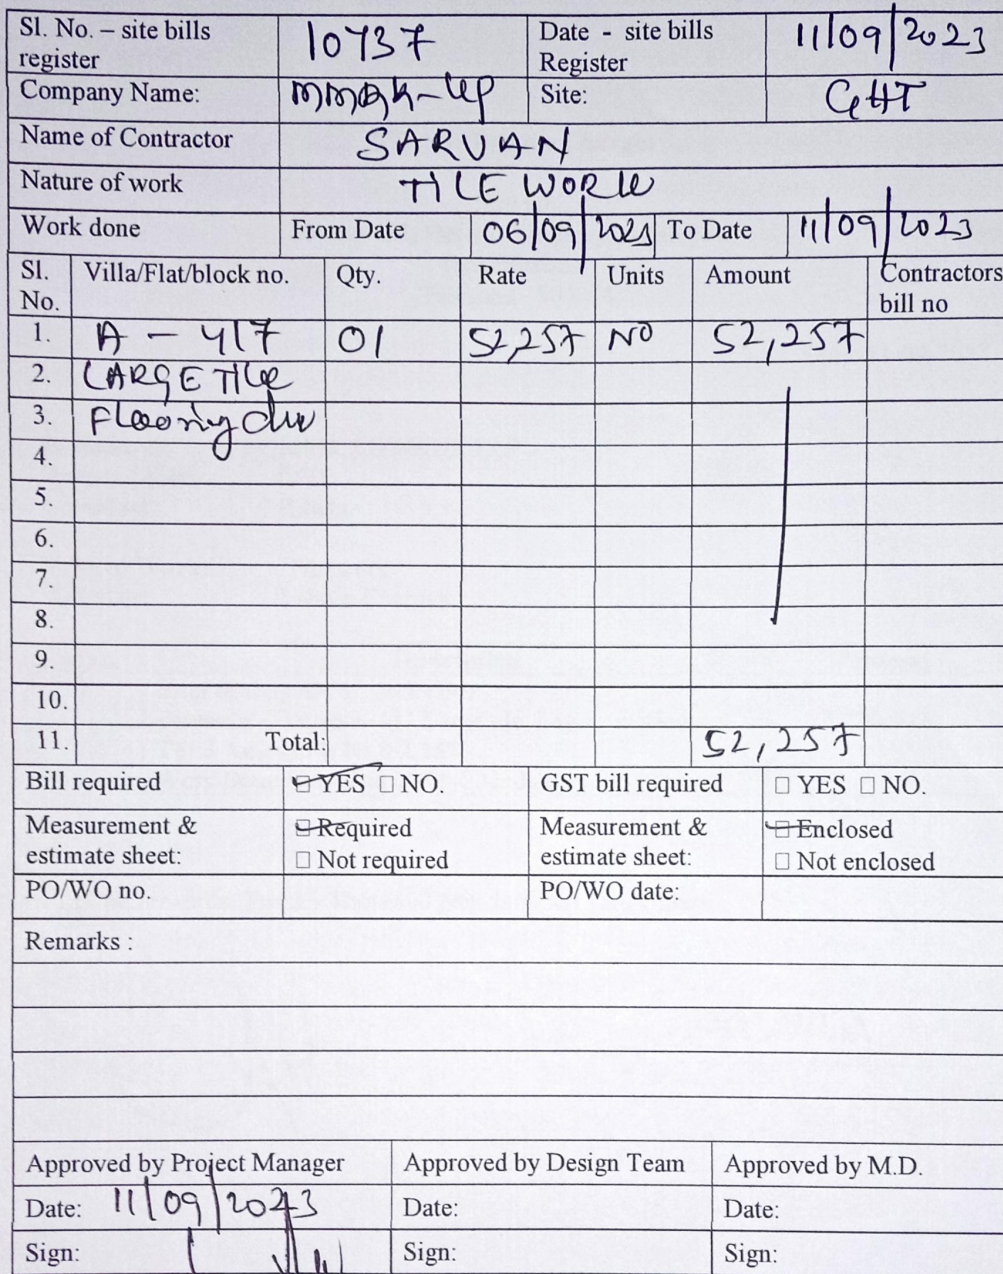 Sl. No. – site bills register 10737 Date - site bills Register 11/09/2023
Company Name: Site: GHT
Name of Contractor SARVAN
Nature of work TILE WORK
Work done From Date 06/09/2023 To Date 11/09/2023
Sl. No. Villa/Flat/block no. Qty. Rate Units Amount Contractors bill no
1. A - 417 01 52,257 NO 52,257
2. LARGE TILE
3. Flooring
4.
5.
6.
7.
8.
9.
10.
11. Total: 52,257
Bill required YES NO. GST bill required YES NO.
Measurement & estimate sheet: Required Not required Measurement & estimate sheet: Enclosed Not enclosed
PO/WO no. PO/WO date:
Remarks :
Approved by Project Manager Approved by Design Team Approved by M.D.
Date: 11/09/2023 Date: Date:
Sign: Sign: Sign: